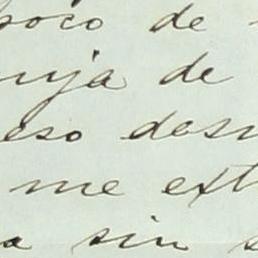 poco de
uja de
eso des
me ext
a sin s